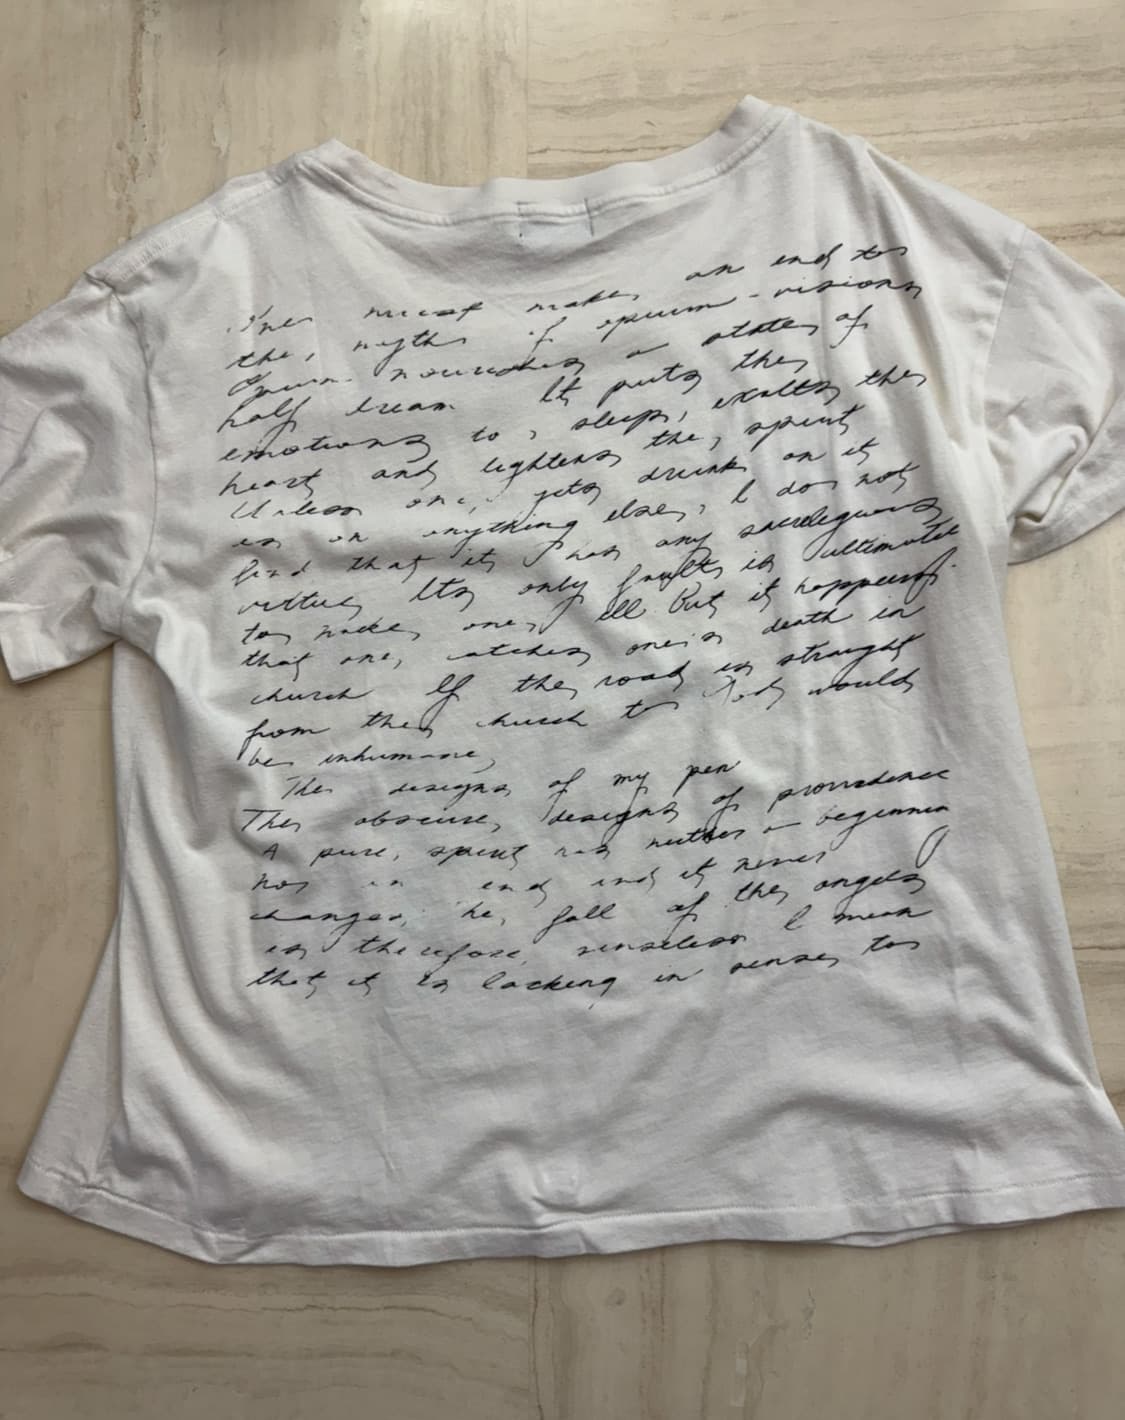 One must make an end to
the myth of opium-visions
Opium nourishes a state of
half dream It puts the
emotions to sleep, exalts the
heart and lightens the spirit
Unless one gets drunk on it
as on anything else, I do not
find that it has any sacrilegious
virtue Its only fault is ultimately
to make one ill But it happens
that one catches one's death in
church If the road is straight
from the church to God would
be inhumane
The designs of my pen
The obscure designs of providence
A pure spirit has neither a beginning
nor an end and it never
changes, the fall of the angels
is therefore senseless I mean
that it is lacking in sense to